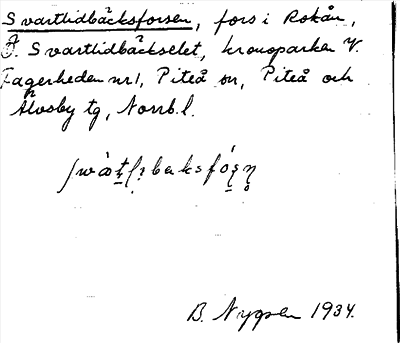 Svartlidbäcksforsen, fors i Rokån,
Svartlidbäckselet, kronoparken V.
Fagerheden nr 1, Piteå sn, Piteå och
Älvsby tg, Norrb. l.
B. Nygren 1934.